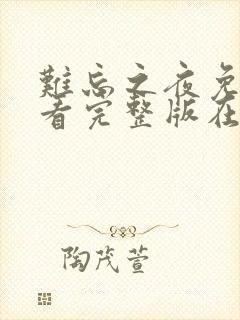 難忘之夜免
看完整版在
陶茂萱